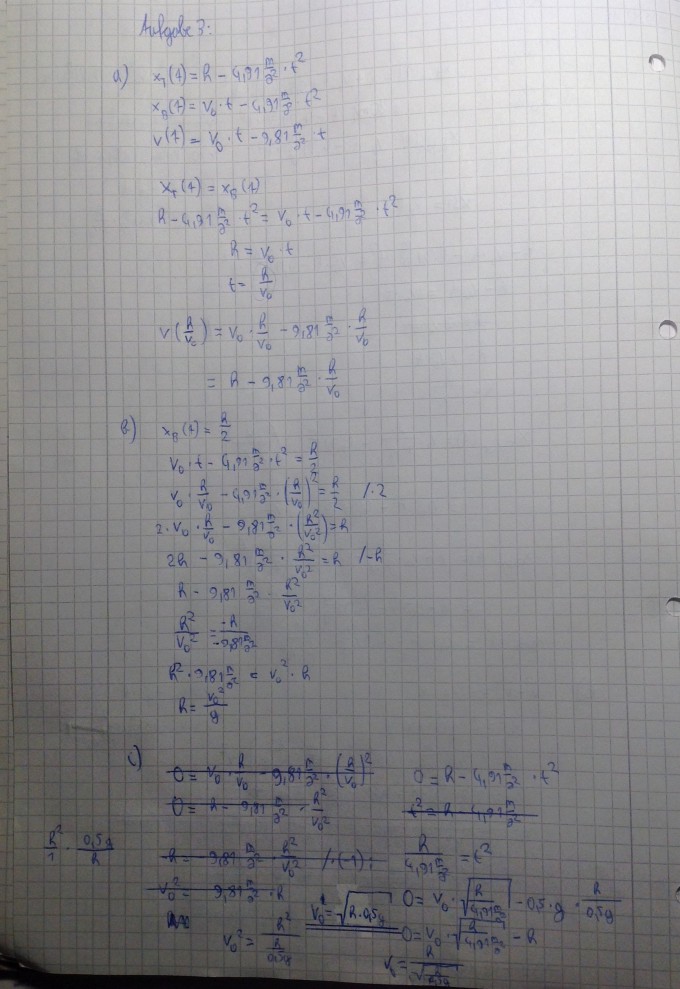 Aufgabe 3:
a) x_T(t) = h - 4,91 m/s² · t²
x_B(t) = v₀ · t - 4,91 m/s² t²
v(t) = v₀ · t - 9,81 m/s² t
x_T(t) = x_B(t)
h - 4,91 m/s² t² = v₀ · t - 4,91 m/s² · t²
h = v₀ · t
t = h/v₀
v(h/v₀) = v₀ · h/v₀ - 9,81 m/s² · h/v₀
= h - 9,81 m/s² · h/v₀
b) x_B(t) = h/2
v₀ · t - 4,91 m/s² · t² = h/2
v₀ · h/v₀ - 4,91 m/s² · (h/v₀)² = h/2 /·2
2 · v₀ · h/v₀ - 9,81 m/s² · (h²/v₀²) = h
2h - 9,81 m/s² · h²/v₀² = h /-h
h - 9,81 m/s² · h²/v₀²
h²/v₀² = -h/-9,81 m/s²
h² · 9,81 m/s² = v₀² · h
h = v₀²/g
c) 0 = v₀ · h/v₀ - 9,81 m/s² · (h/v₀)²
0 = h - 9,81 m/s² · h²/v₀²
-h = -9,81 m/s² · h²/v₀² /·(-1) :
v₀² = 9,81 m/s² · h
h²/1 · 0,5g/h
v₀² = h²/(h/0,5g)
v₀ = √(h · 0,5g)
0 = h - 4,91 m/s² · t²
t² = h - 4,91 m/s²
h/4,91 m/s² = t²
0 = v₀ · √(h/4,91 m/s²) - 0,5 · g · h/0,5g
0 = v₀ · √(h/4,91 m/s²) - h
v₀ = h/√(h/0,5g)